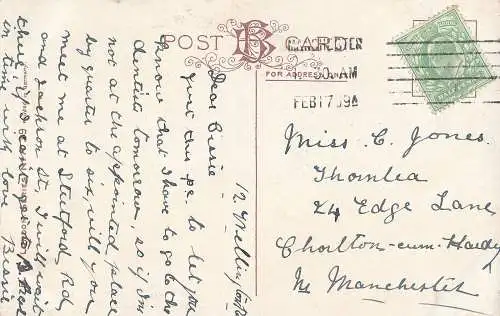 POST CARD
FOR ADDRESS ONLY
MANCHESTER
AM
FEB 17 09
12 Wellington
Dear Cissie
Just this pc to let you
know that I have to go to the
dentist tomorrow, so if I'm
not at the appointed place
by quarter to six, will you
meet me at Stretford Rd,
and Jackson St, I will wait
there
in time with love
Bessie
Miss C. Jones.
Thornlea
24 Edge Lane
Chorlton-cum-Hardy
Nr Manchester